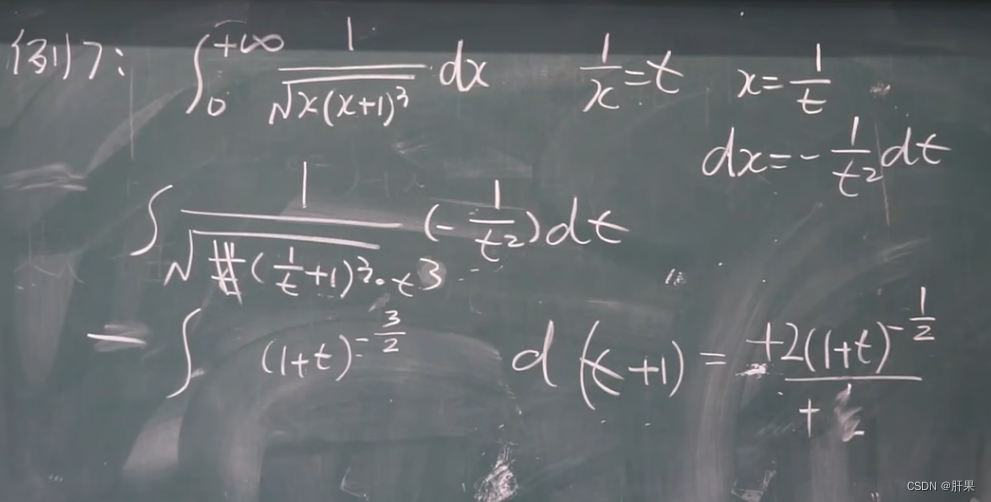 例7: ∫₀^{+∞} 1/√(x(x+1)³) dx    1/x = t    x = 1/t
dx = -1/t² dt
∫ 1/√((1/t+1)³·t³) (-1/t²) dt
= ∫ (1+t)^{-3/2} d(t+1) = +2(1+t)^{-1/2}
CSDN @肝果